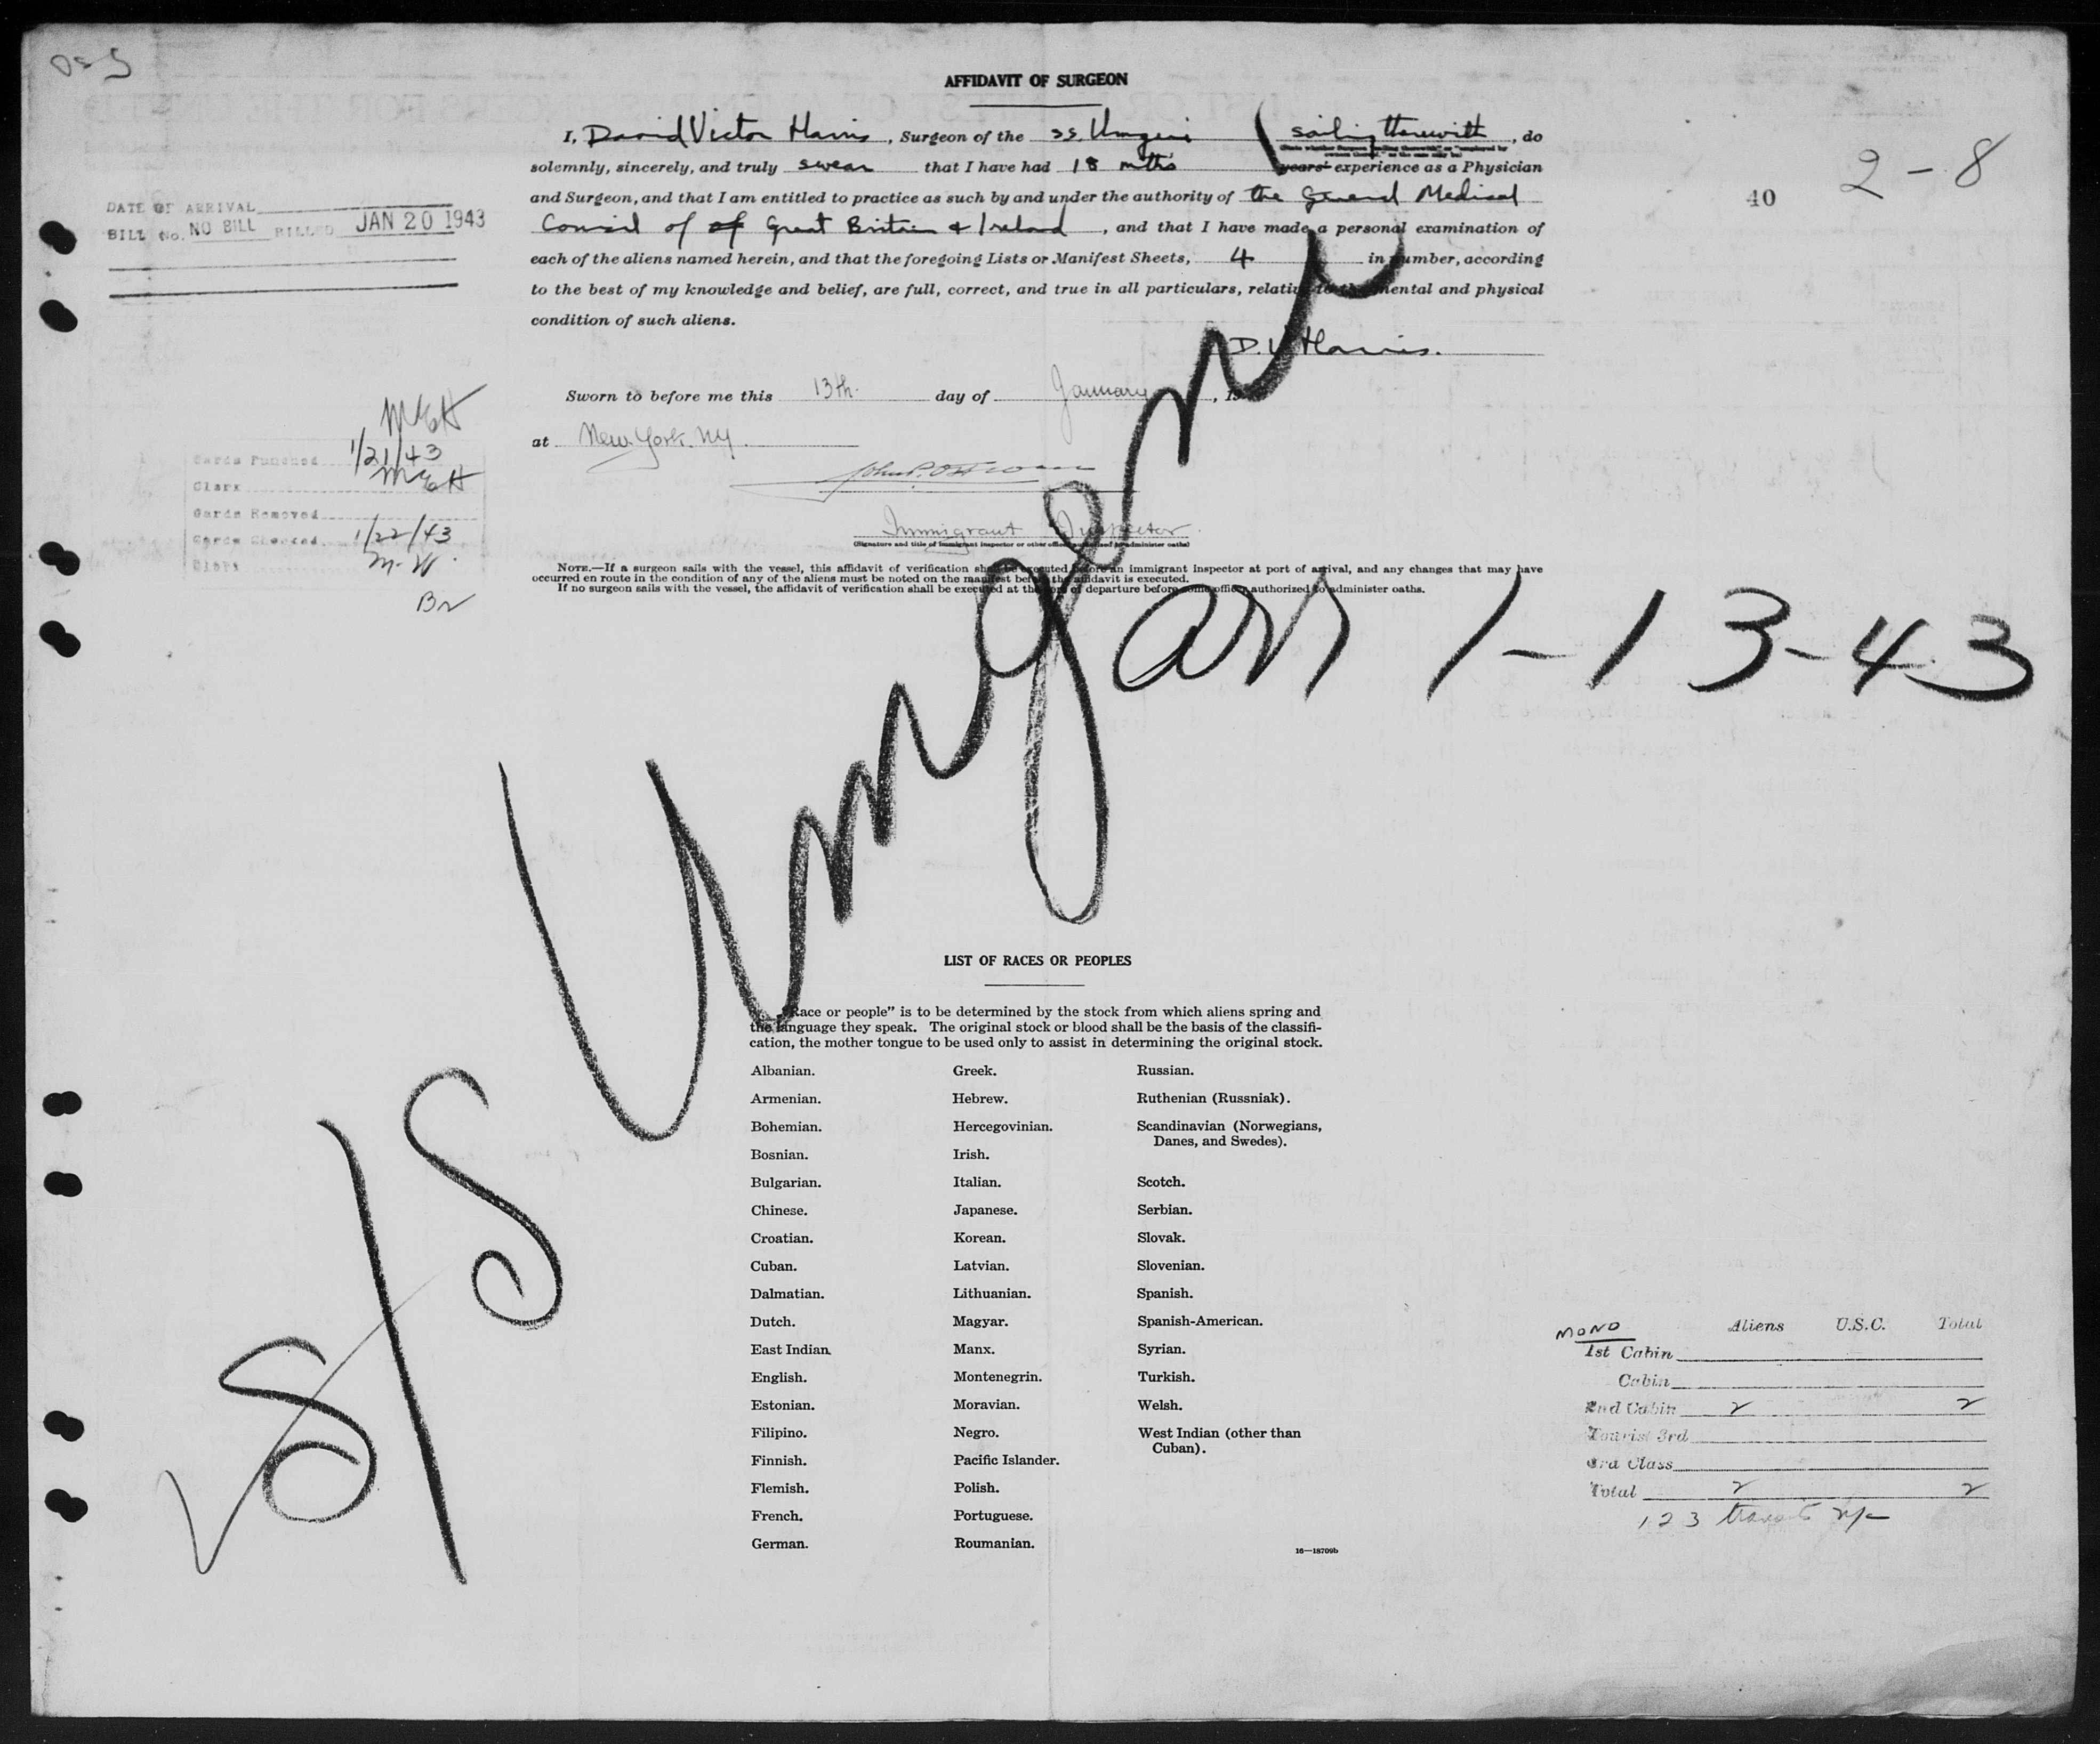 AFFIDAVIT OF SURGEON
I, David Victor Harris, Surgeon of the ss. Umgeni sailing therewith, do
solemnly, sincerely, and truly swear that I have had 18 mths years' experience as a Physician
and Surgeon, and that I am entitled to practice as such by and under the authority of the General Medical
Council of of Great Britain & Ireland, and that I have made a personal examination of
each of the aliens named herein, and that the foregoing Lists or Manifest Sheets, 4 in number, according
to the best of my knowledge and belief, are full, correct, and true in all particulars, relative to the mental and physical
condition of such aliens.
D. V. Harris.
Sworn to before me this 13th. day of January, 19
at New York. NY.
Immigrant Inspector
(Signature and title of immigrant inspector or other officer authorized to administer oaths)
NOTE.—If a surgeon sails with the vessel, this affidavit of verification shall be executed before an immigrant inspector at port of arrival, and any changes that may have
occurred en route in the condition of any of the aliens must be noted on the manifest before the affidavit is executed.
If no surgeon sails with the vessel, the affidavit of verification shall be executed at the port of departure before some officer authorized to administer oaths.
40
2-8
DATE OF ARRIVAL
BILL No. NO BILL BILLED JAN 20 1943
MEH
Cards Punched 1/21/43
Clerk MEH
Cards Removed
Cards Checked 1/22/43
Clerk M.W.
Br
S/S Umgeni
arr 1-13-43
LIST OF RACES OR PEOPLES
"Race or people" is to be determined by the stock from which aliens spring and
the language they speak. The original stock or blood shall be the basis of the classifi-
cation, the mother tongue to be used only to assist in determining the original stock.
Albanian. Greek. Russian.
Armenian. Hebrew. Ruthenian (Russniak).
Bohemian. Hercegovinian. Scandinavian (Norwegians,
Danes, and Swedes).
Bosnian. Irish.
Bulgarian. Italian. Scotch.
Chinese. Japanese. Serbian.
Croatian. Korean. Slovak.
Cuban. Latvian. Slovenian.
Dalmatian. Lithuanian. Spanish.
Dutch. Magyar. Spanish-American.
East Indian. Manx. Syrian.
English. Montenegrin. Turkish.
Estonian. Moravian. Welsh.
Filipino. Negro. West Indian (other than
Cuban).
Finnish. Pacific Islander.
Flemish. Polish.
French. Portuguese.
German. Roumanian.
16—18709b
MONO Aliens U.S.C. Total
1st Cabin
Cabin
2nd Cabin 2 2
Tourist 3rd
3rd Class
Total 2 2
123 transits